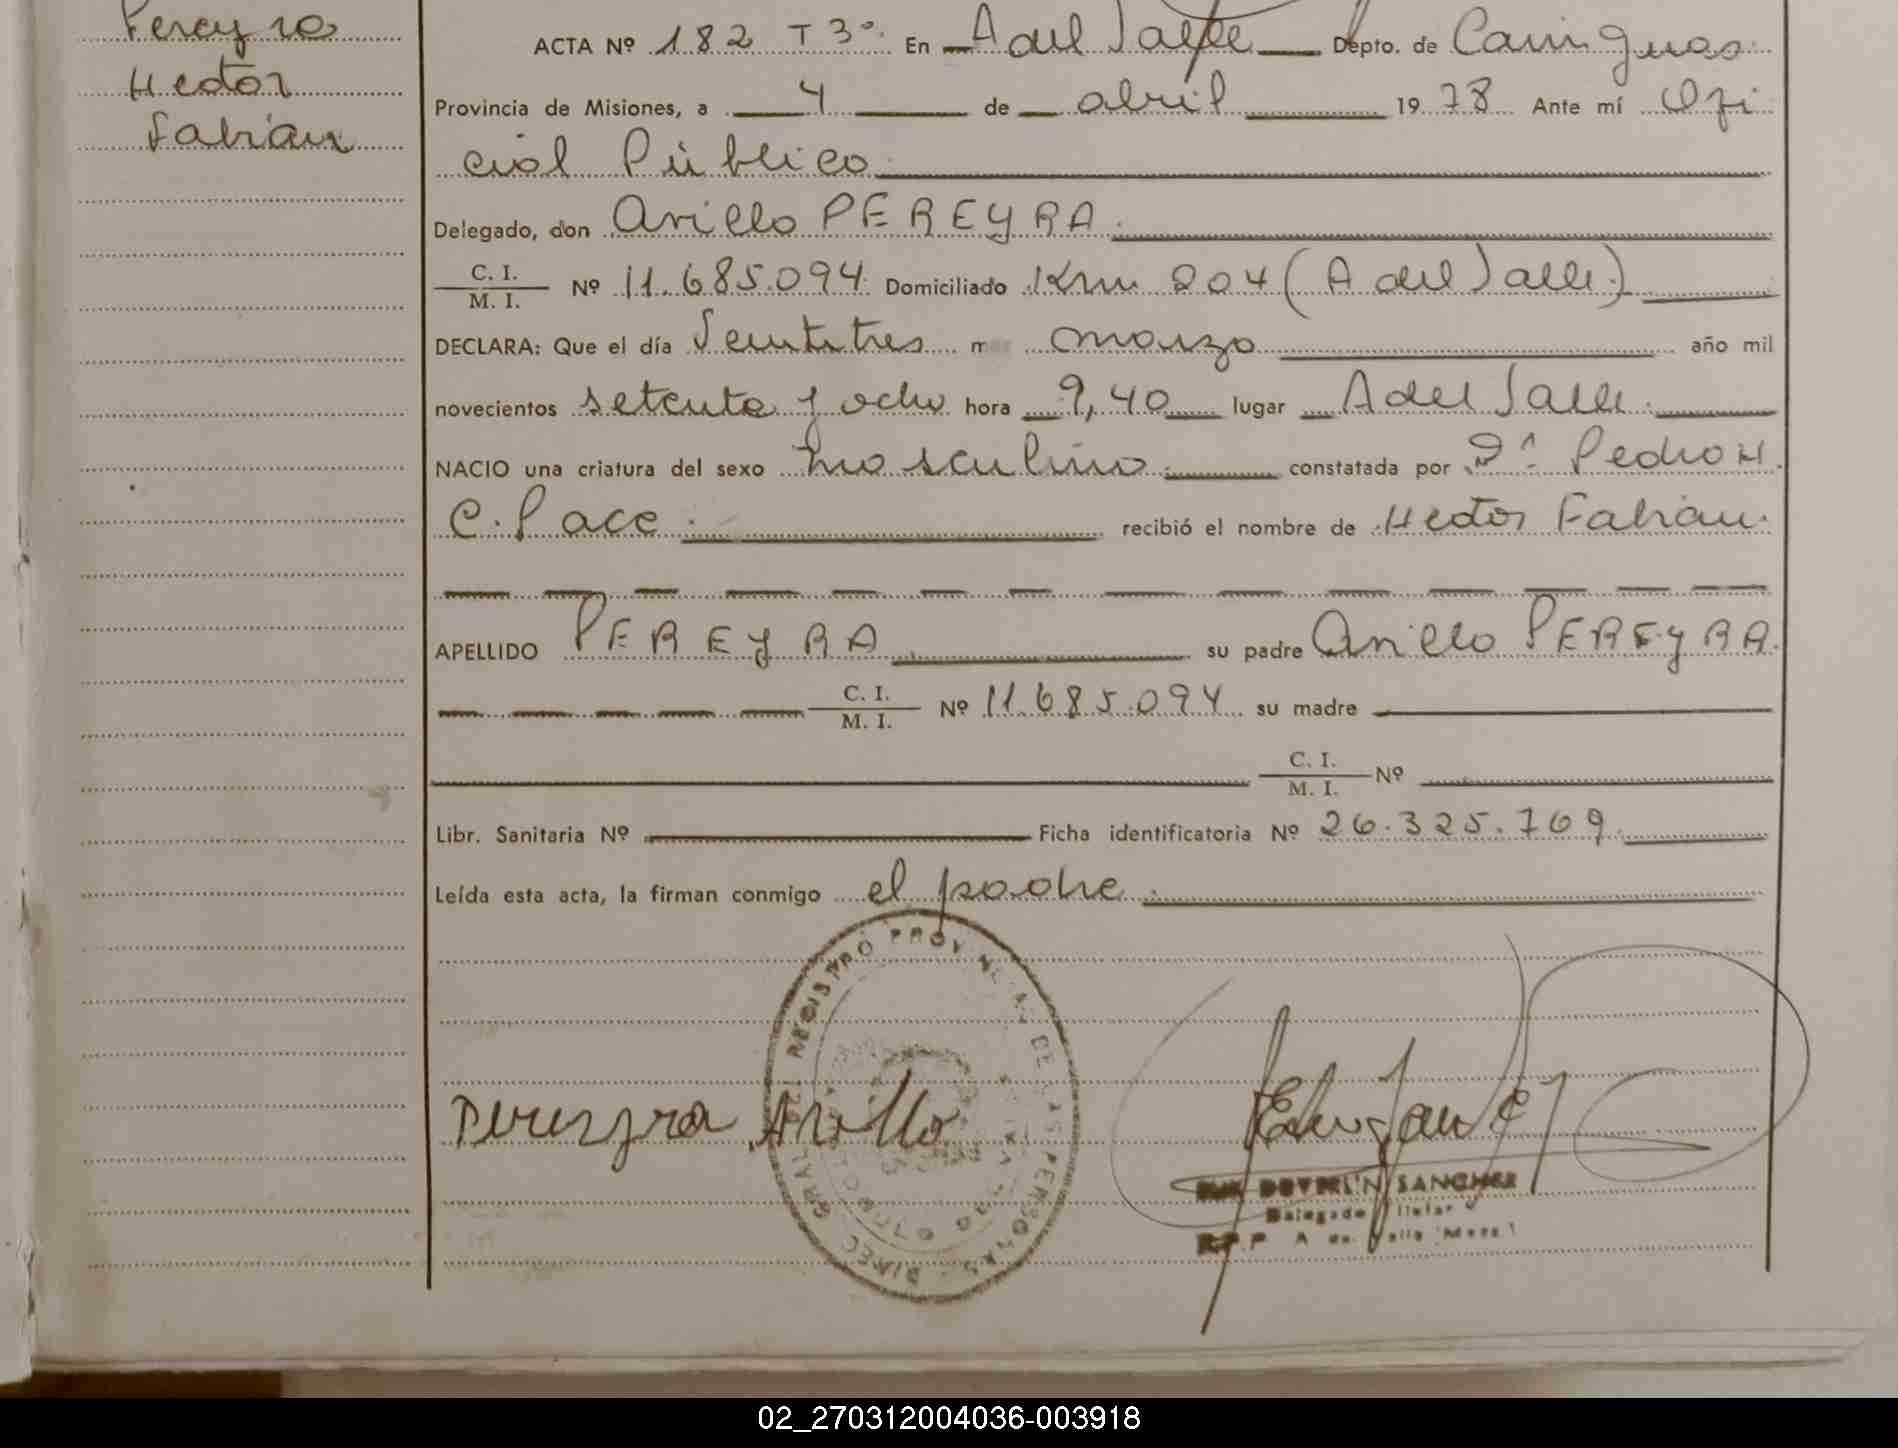 Pereyra
Hector
Fabian
ACTA Nº 182 T3º En A del Valle Depto. de Cainguas
Provincia de Misiones, a 4 de abril 1978 Ante mí Ofi
cial Público
Delegado, don Arillo PEREYRA
C. I.
M. I. Nº 11.685.094 Domiciliado Km 204 (A del Valle)
DECLARA: Que el día Veintitres m marzo año mil
novecientos setenta y ocho hora 9,40 lugar A del Valle
NACIO una criatura del sexo masculino constatada por Dr. Pedro H
C. Pace recibió el nombre de Hector Fabian
APELLIDO PEREYRA su padre Arillo PEREYRA
C. I.
M. I. Nº 11.685.094 su madre
C. I.
M. I. Nº
Libr. Sanitaria Nº Ficha identificatoria Nº 26.325.769
Leída esta acta, la firman conmigo el padre
DIREC GRAL DEL REGISTRO PROVINCIAL DE LAS PERSONAS
Pereyra Arillo
SANCHEZ
Delegado Titular
R.P.P. A del Valle Mnes.
02_270312004036-003918